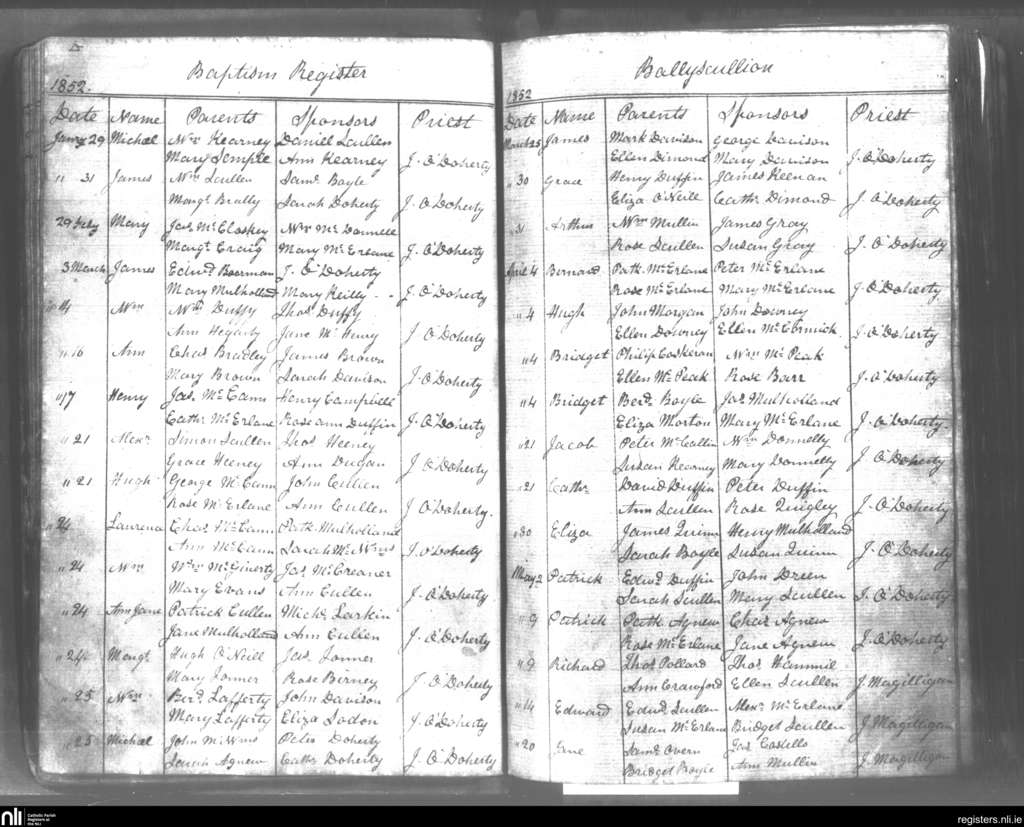 Baptism Register
1852.
Date Name Parents Sponsors Priest
Jany 29 Michael Wm Kearney Daniel Scullen
Mary Semple Ann Kearney J. O'Doherty
" 31 James Wm Scullen Saml. Boyle
Margt. Sarah Doherty J. O'Doherty
29 Feby Mary Jas. McCloskey Wm McDonnell
Margt. Craig Mary McErlane J. O'Doherty
3 March James Edwd. Boorman J. O'Doherty
Mary Mulholland Mary Reilly J. O'Doherty
" 14 Wm Wm Duffy Thos. Duffy
Ann Hegarty Jane McHenry J O'Doherty
" 16 Ann Chas Bradley James Brown
Mary Brown Sarah Davison J. O'Doherty
" 17 Henry Jas. McCann Henry Campbell
Cathe. McErlane Rose ann Duffin J. O'Doherty
" 21 Alexr. Simon Scullen Thos Heeney
Grace Heeney Ann Dugan J O'Doherty
" 21 Hugh George McCann John Cullen
Rose McErlane Ann Cullen J O'Doherty.
" 24 Laurena Chas. McCann Patk Mulholland
Ann McCann Sarah J. O'Doherty
" 24 Wm Wm McGinerty Jas. McCreaner
Mary Evans Ann Cullen J. O'Doherty
" 24 Ann Jane Patrick Cullen Michl. Larkin
Jane Mulholland Ann Cullen J. O'Doherty
" 24 Margt. Hugh O'Neill Jas. Jonner
Mary Jonner Rose Birney J. O'Doherty
" 25 Wm. Berd. Lafferty John Davison
Mary Lafferty Eliza Sodon J. O'Doherty
" 25 Michael John Peter Doherty
Agnew Cathe Doherty J. O'Doherty
Ballyscullion
1852
Date Name Parents Sponsors Priest
March 25 James Mark Davison George Davison
Ellen Dimond Mary Davison J. O'Doherty
" 30 Grace Henry Duffin James Keenan
Eliza O'Neill Cathe. Dimond J O'Doherty
31 Arthur Wm Mullin James Gray
Rose Scullen Susan Gray J. O'Doherty
April 4 Bernard Patk. McErlane Peter McErlane
Rose McErlane Mary McErlane J. O'Doherty
" 4 Hugh John Morgan John Downey
Ellen Downey Ellen McCormick J. O'Doherty
" 4 Bridget Philip Coskeran Wm McPeak
Ellen McPeak Rose Barr J. O'Doherty
" 4 Bridget Berd. Boyle Jas. Mulholland
Eliza Morton Mary McErlane J. O'Doherty.
" 21 Jacob Peter McCallin Wm Donnelly
Susan Kearney Mary Donnelly J O'Doherty
" 21 Cathe. David Duffin Peter Duffin
Ann Scullen Rose Quigley J. O'Doherty
" 30 Eliza James Quinn Henry Mulholland
Sarah Boyle Susan Quinn J. O'Doherty
May 2 Patrick Edwd. Duffin John Dreen
Sarah Scullen Mary Scullen J. O'Doherty
" 9 Patrick Patk Agnew Chas Agnew
Rose McErlane Jane Agnew J. O'Doherty
" 9 Richard Thos Pollard Thos Hammil
Ann Crawford Ellen Scullen J Magilligan
" 14 Edward Edwd. Scullen Alexr. McErlane
Susan McErlane Bridget Scullen J Magilligan
" 20 Jane Saml Overn Jas Costello
Bridget Boyle Ann Mullin J. Magilligan
nli Catholic Parish
Registers at
the NLI
registers.nli.ie